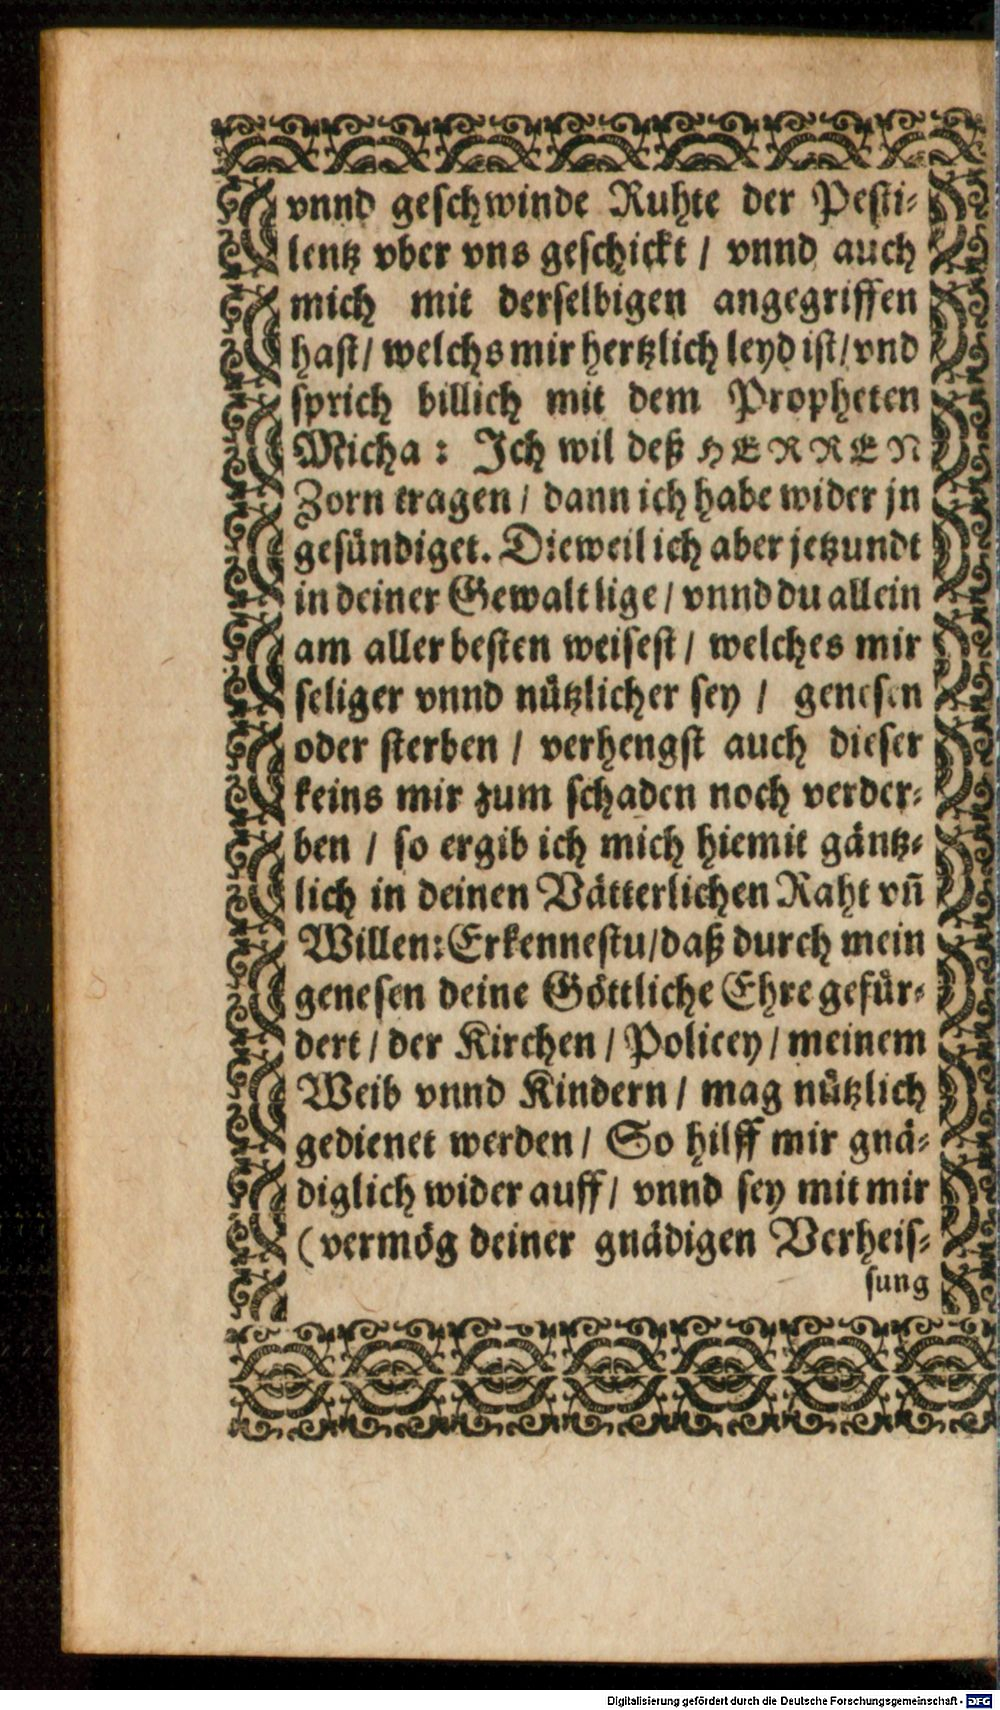 vnnd geschwinde Ruhte der Pesti-
lentz vber vns geschickt / vnnd auch
mich mit derselbigen angegriffen
hast / welchs mir hertzlich leyd ist / vnd
sprich billich mit dem Propheten
Micha : Ich wil deß HERREN
Zorn tragen / dann ich habe wider jn
gesündiget. Dieweil ich aber jetzundt
in deiner Gewalt lige / vnnd du allein
am aller besten weisest / welches mir
seliger vnnd nützlicher sey / genesen
oder sterben / verhengst auch dieser
keins mir zum schaden noch verder-
ben / so ergib ich mich hiemit gäntz-
lich in deinen Vätterlichen Raht vñ
Willen: Erkennestu / daß durch mein
genesen deine Göttliche Ehre gefür-
dert / der Kirchen / Policey / meinem
Weib vnnd Kindern / mag nützlich
gedienet werden / So hilff mir gnä-
diglich wider auff / vnnd sey mit mir
(vermög deiner gnädigen Verheis-
sung
Digitalisierung gefördert durch die Deutsche Forschungsgemeinschaft - DFG